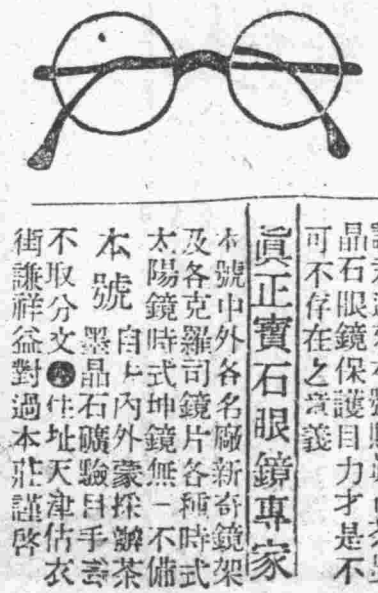 晶石眼鏡保護目力才是不
可不存在之意義
眞正寶石眼鏡專家
本號中外各名廠新奇鏡架
及各克羅司鏡片各種時式
太陽鏡時式坤鏡無一不備
本號自上內外蒙採辦茶
墨晶石礦驗目手
不取分文住址天津估衣
街謙祥益對過本莊謹啓